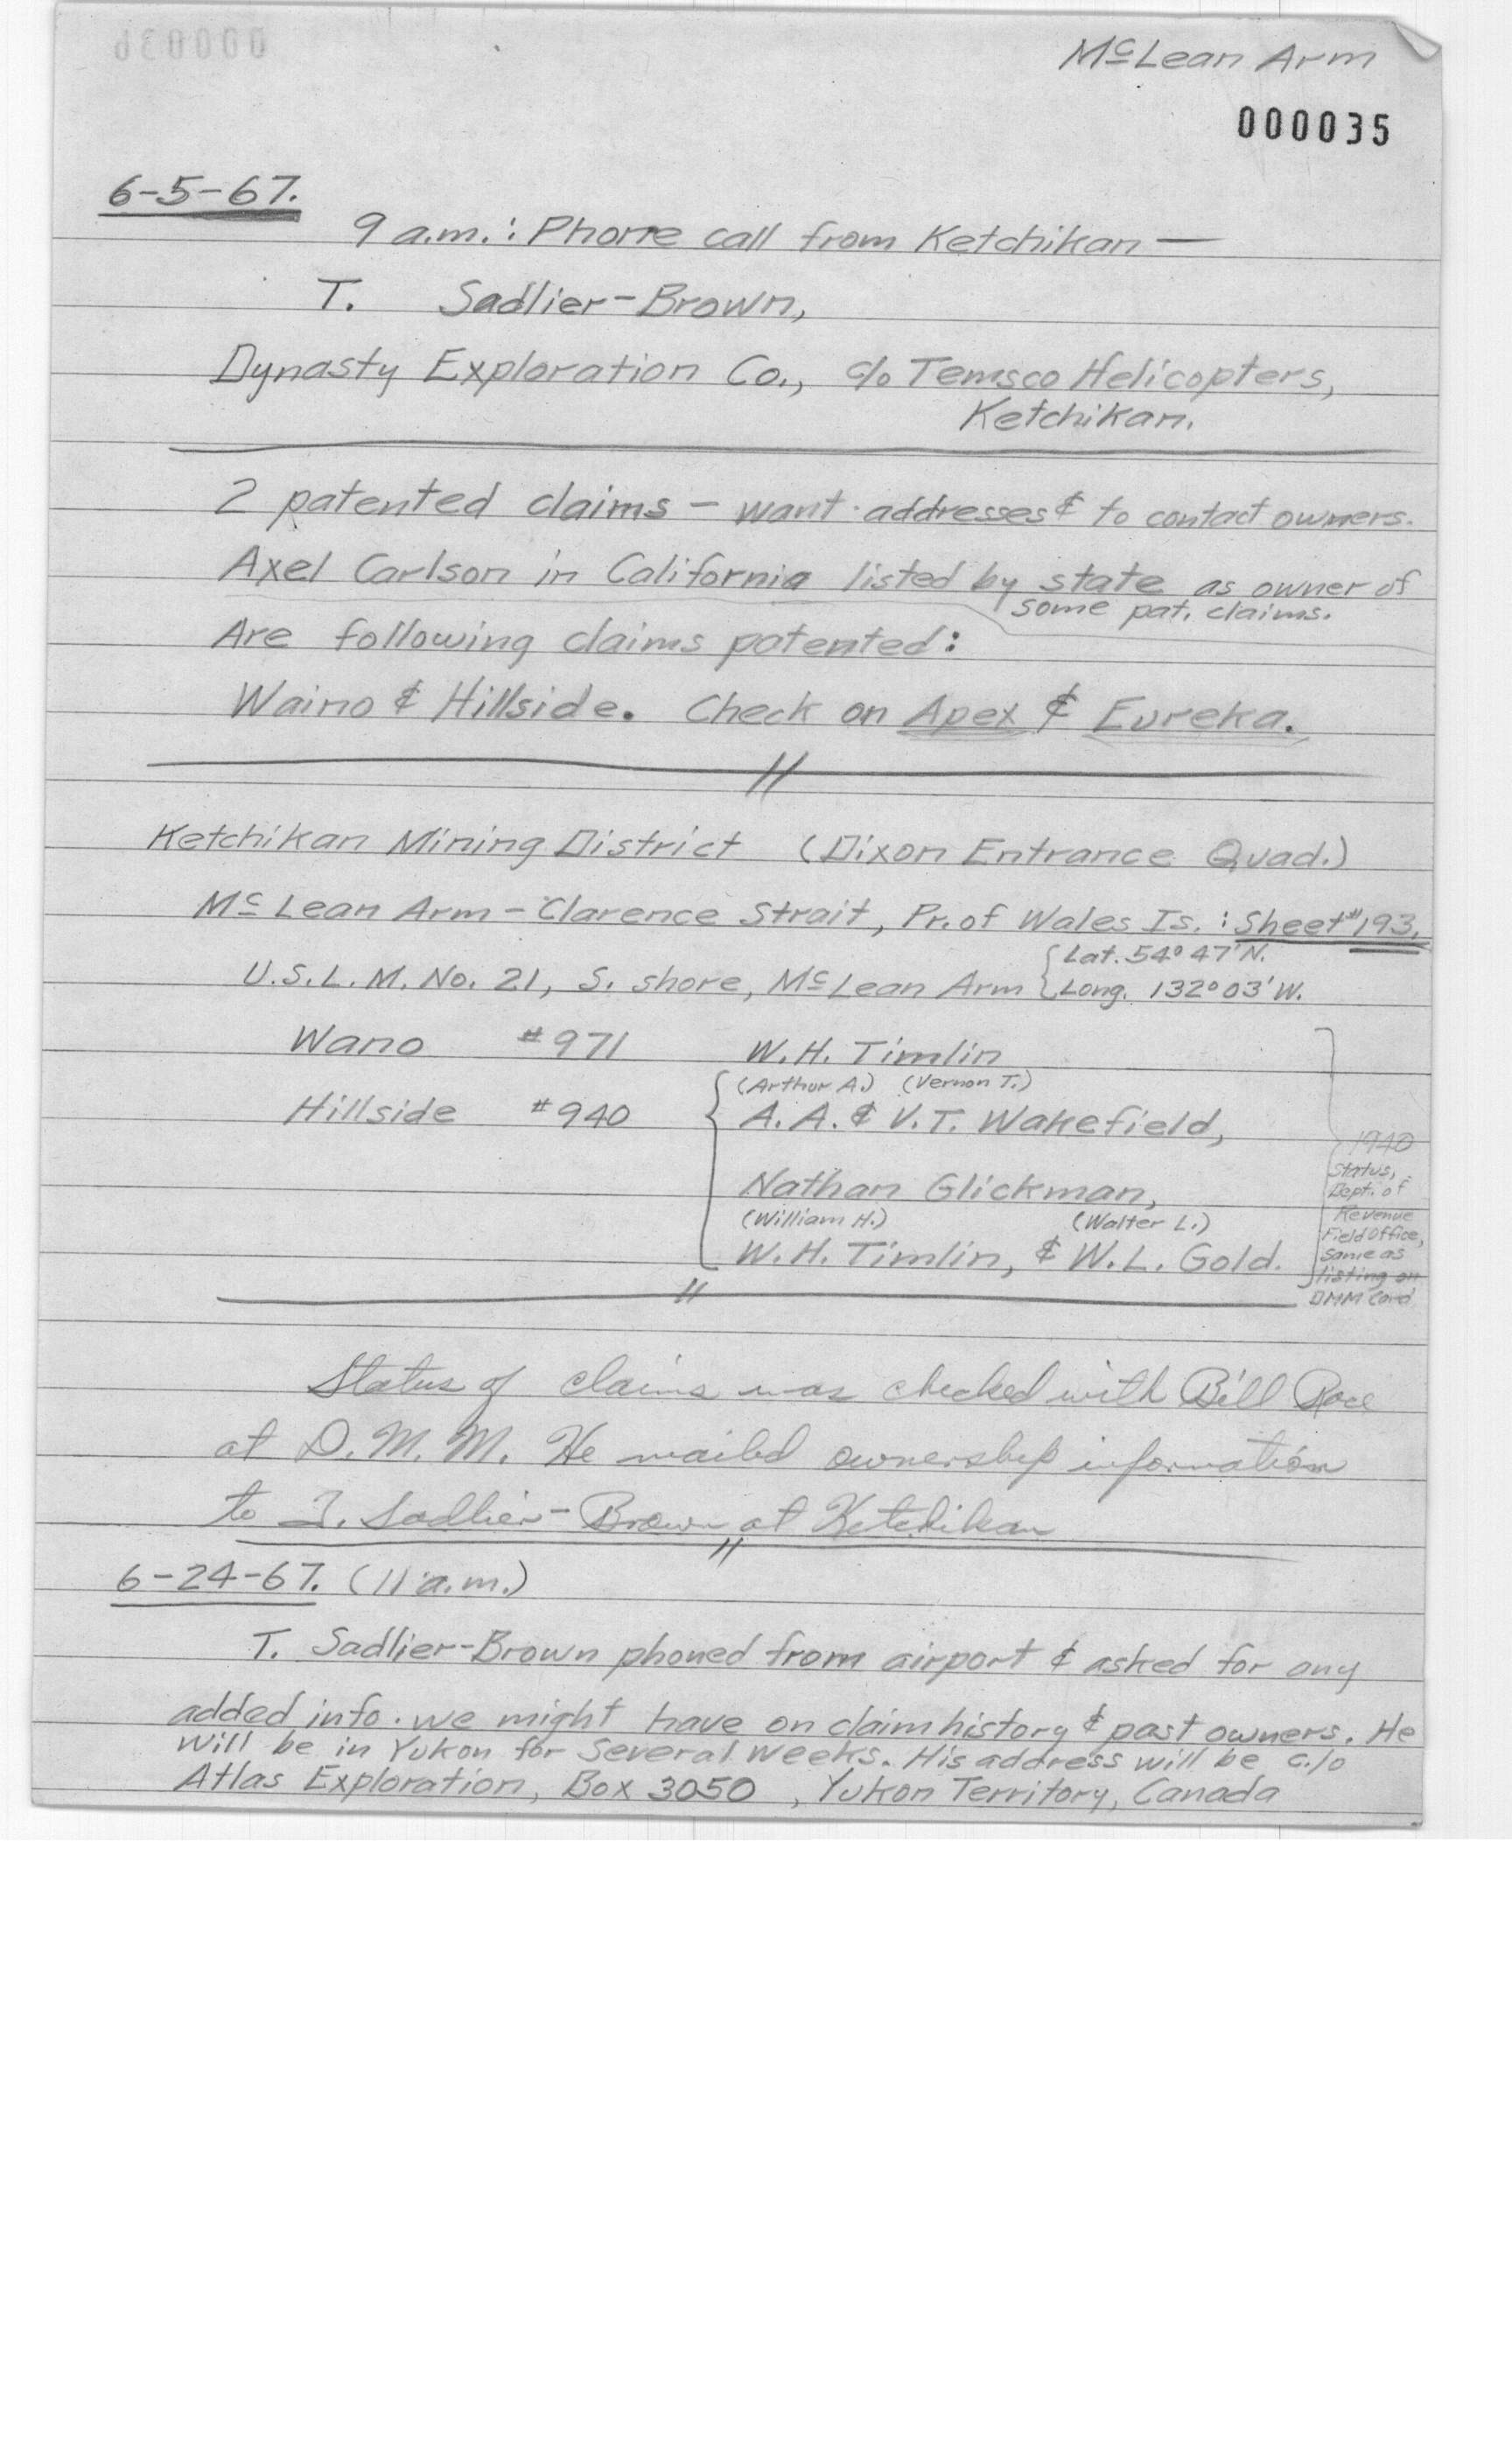 McLean Arm
000035
6-5-67.
9 a.m.: Phone call from Ketchikan —
T. Sadlier-Brown,
Dynasty Exploration Co., c/o Temsco Helicopters,
Ketchikan.
2 patented claims - want addresses & to contact owners.
Axel Carlson in California listed by state as owner of
some pat. claims.
Are following claims patented:
Waino & Hillside. Check on Apex & Eureka.
Ketchikan Mining District (Dixon Entrance Quad.)
McLean Arm - Clarence Strait, Pr. of Wales Is.: Sheet #193.
U.S.L.M. No. 21, S. shore, McLean Arm { Lat. 54° 47' N.
Long. 132° 03' W.
Wano #971 W.H. Timlin
(Arthur A.) (Vernon T.)
Hillside #940 A.A. & V.T. Wakefield,
Nathan Glickman,
(William H.) (Walter L.)
W.H. Timlin, & W.L. Gold.
1940
Status,
Dept. of
Revenue
Field Office,
same as
listing on
DMM Card
Status of claims was checked with Bill Race
at D.M.M. He mailed ownership information
to T. Sadlier-Brown at Ketchikan
6-24-67. (11 a.m.)
T. Sadlier-Brown phoned from airport & asked for any
added info. we might have on claim history & past owners. He
will be in Yukon for several weeks. His address will be c/o
Atlas Exploration, Box 3050 , Yukon Territory, Canada